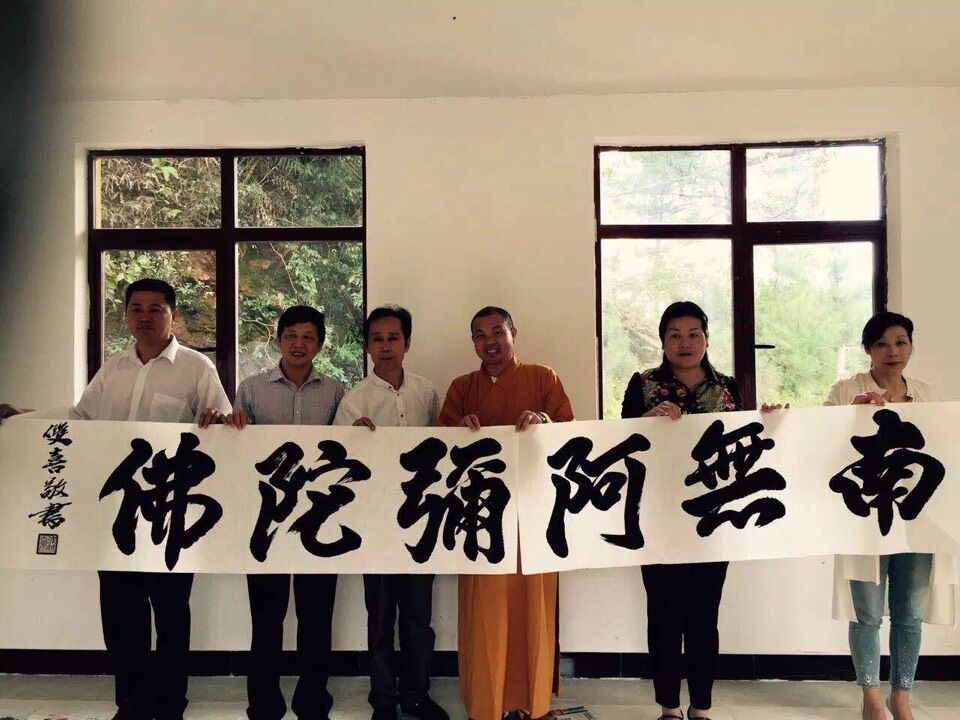 南無阿彌陀佛
雙喜敬書